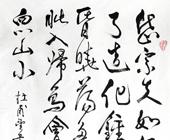 岱宗夫如
了造化鍾
昏曉蕩胸
眦入歸鳥會
山小
杜甫